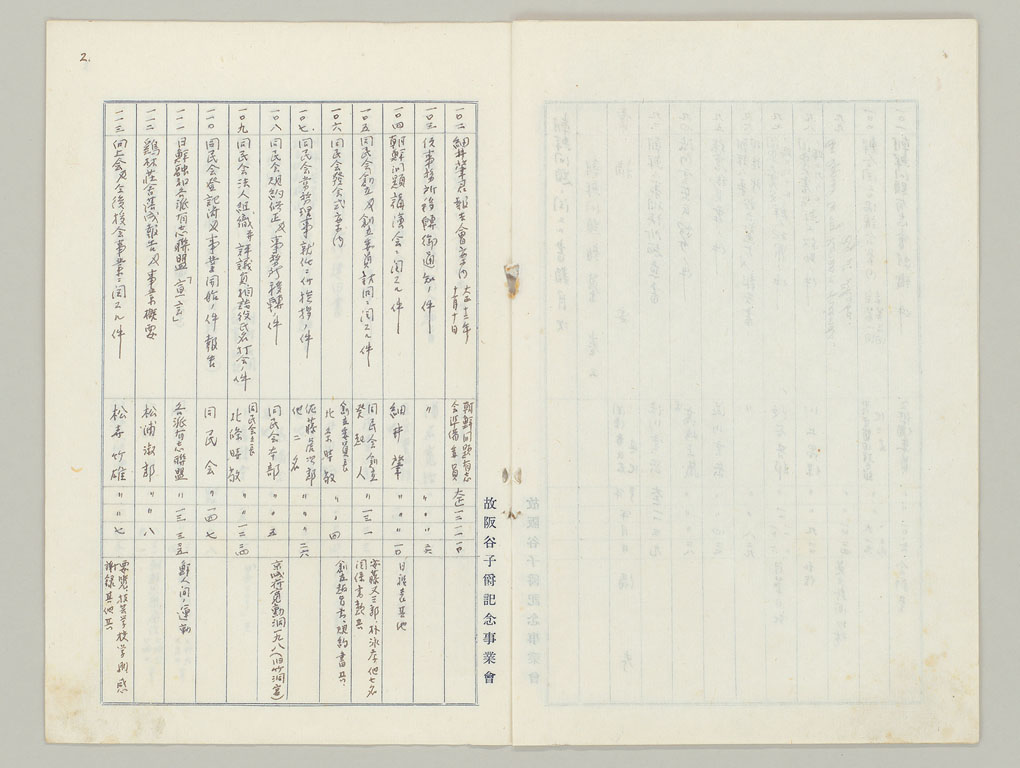 2.
一〇二 細井肇君報告會案内 大正十三年十一月十日 朝鮮問題有志会準備委員 大正一三 一一 一〇
一〇三 仮事務所移轉御通知ノ件 〃 〃 〃 〃 六
一〇四 朝鮮問題講演会ニ関スル件 細井肇 〃 〃 〃 一〇 日程表其他
一〇五 同民会創立及創立委員訪問ニ関スル件 同民会創立発起人 〃 一三 一 安藤又三郎 林 他七名 関係書類共
一〇六 同民会発会式案内 創立委員長 北条時敬 〃 〃 四 創立趣旨書、規約書共
一〇七 同民会常務理事ニ就任ニ付挨拶ノ件 佐藤虎次郎 他二名 〃 〃 〃 二六
一〇八 同民会規約修正及事務所移轉ノ件 同民会本部 〃 〃 五 京城府寛勲洞一九八(旧竹洞宮)
一〇九 同民会法人組織并評議員相談役氏名打合ノ件 同民会々長 北條時敬 〃 〃 一二 二四
一一〇 同民会登記済及事業開始ノ件報告 同民会 〃 一四 七
一一一 日鮮融和各派有志聯盟「宣言」 各派有志聯盟 〃 一三 三 五 鮮人間ノ運動
一一二 鷄林荘舎落成報告及事業概要 松浦淑郎 〃 〃 八
一一三 向上会及全後援会事業ニ関スル件 松寺竹雄 〃 〃 七 要覧、技芸学校学則 感謝録其他共
故阪谷子爵記念事業會